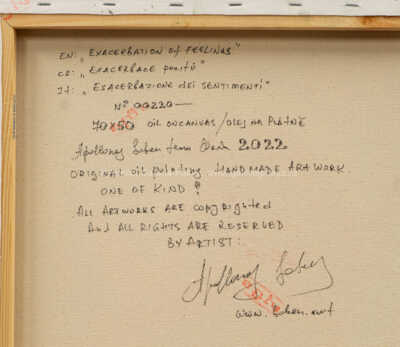 EN: „EXACERBATION OF FEELINGS"
CZ: „EXACERBACE pocitů"
It: „ESACERBAZIONE dei SENTIMENTI"
Nº 00220
70x50 OIL ON CANVAS / OLEJ NA PLÁTNĚ
2022
ORIGINAL oil painting HANDMADE ARTWORK.
ONE OF KIND!
ALL ARTWORKS ARE copyrighted
And ALL RIGHTS ARE RESERVED
BY ARTIST: